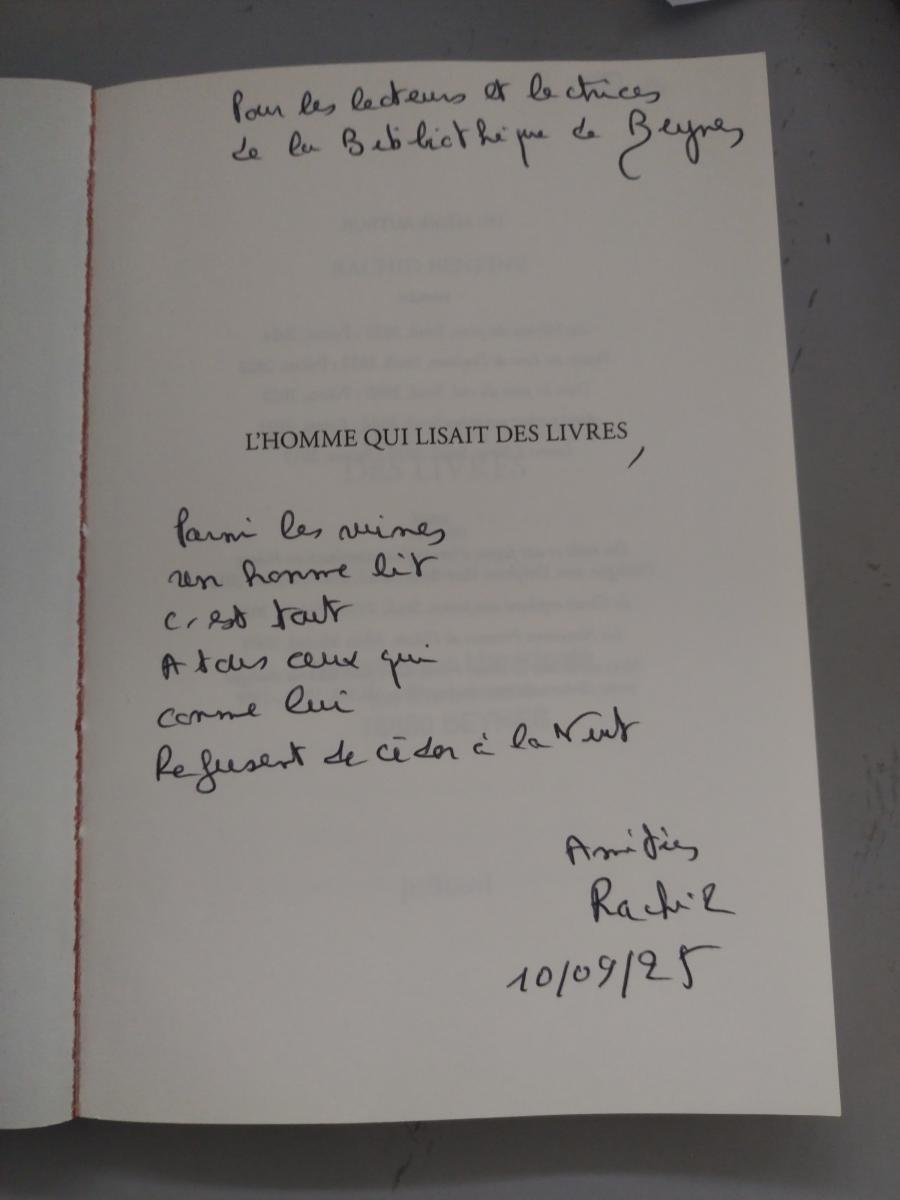 Pour les lecteurs et lectrices
de la Bibliothèque de Beynes
L'HOMME QUI LISAIT DES LIVRES,
Parmi les ruines
un homme lit
c'est tout
A tous ceux qui
comme lui
Refusent de céder à la Nuit
Amitiés
Rachid
10/09/25